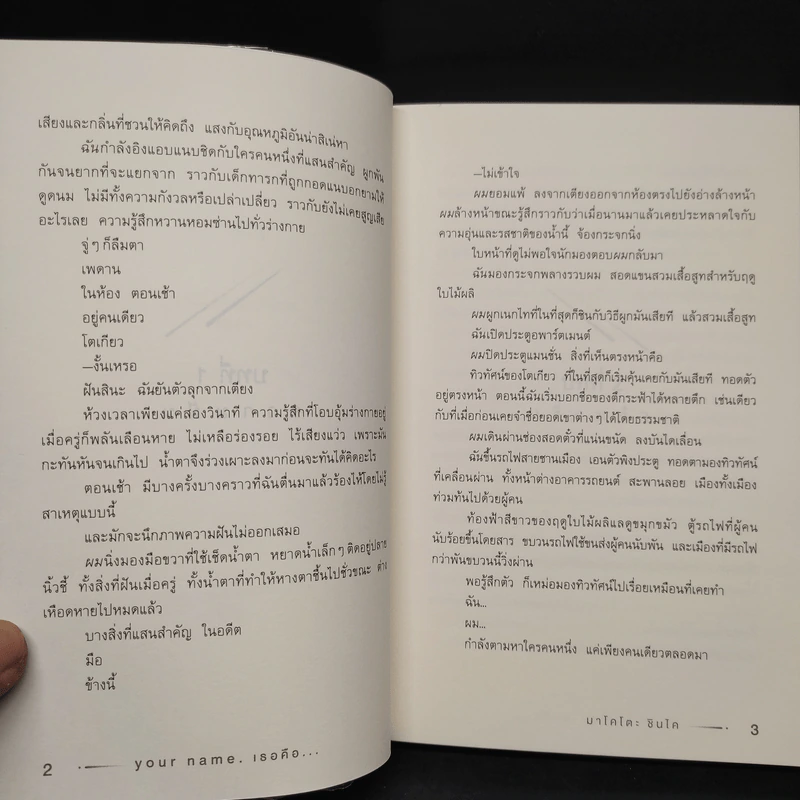 เสียงและกลิ่นที่ชวนให้คิดถึง แสงกับอุณหภูมิอันน่าสิเน่หา
ฉันกำลังอิงแอบแนบชิดกับใครคนหนึ่งที่แสนสำคัญ ผูกพัน
กันจนยากที่จะแยกจาก ราวกับเด็กทารกที่ถูกกอดแนบอกยามให้
ดูดนม ไม่มีทั้งความกังวลหรือเปล่าเปลี่ยว ราวกับยังไม่เคยสูญเสีย
อะไรเลย ความรู้สึกหวานหอมซ่านไปทั่วร่างกาย
จู่ๆ ก็ลืมตา
เพดาน
ในห้อง ตอนเช้า
อยู่คนเดียว
โตเกียว
—งั้นเหรอ
ฝันสินะ ฉันยันตัวลุกจากเตียง
ห้วงเวลาเพียงแค่สองวินาที ความรู้สึกที่โอบอุ้มร่างกายอยู่
เมื่อครู่ก็พลันเลือนหาย ไม่เหลือร่องรอย ไร้เสียงแว่ว เพราะมัน
กะทันหันจนเกินไป น้ำตาจึงร่วงเผาะลงมาก่อนจะทันได้คิดอะไร
ตอนเช้า มีบางครั้งบางคราวที่ฉันตื่นมาแล้วร้องไห้โดยไม่รู้
สาเหตุแบบนี้
และมักจะนึกภาพความฝันไม่ออกเสมอ
ผมนิ่งมองมือขวาที่ใช้เช็ดน้ำตา หยาดน้ำเล็กๆ ติดอยู่ปลาย
นิ้วชี้ ทั้งสิ่งที่ฝันเมื่อครู่ ทั้งน้ำตาที่ทำให้หางตาชื้นไปชั่วขณะ ต่าง
เหือดหายไปหมดแล้ว
บางสิ่งที่แสนสำคัญ ในอดีต
มือ
ข้างนี้
2 your name. เธอคือ...
—ไม่เข้าใจ
ผมยอมแพ้ ลงจากเตียงออกจากห้องตรงไปยังอ่างล้างหน้า
ผมล้างหน้าขณะรู้สึกราวกับว่าเมื่อนานมาแล้วเคยประหลาดใจกับ
ความอุ่นและรสชาติของน้ำนี้ จ้องกระจกนิ่ง
ใบหน้าที่ดูไม่พอใจนักมองตอบผมกลับมา
ฉันมองกระจกพลางรวบผม สอดแขนสวมเสื้อสูทสำหรับฤดู
ใบไม้ผลิ
ผมผูกเนกไทที่ในที่สุดก็ชินกับวิธีผูกมันเสียที แล้วสวมเสื้อสูท
ฉันเปิดประตูอพาร์ตเมนต์
ผมปิดประตูแมนชั่น สิ่งที่เห็นตรงหน้าคือ
ทิวทัศน์ของโตเกียว ที่ในที่สุดก็เริ่มคุ้นเคยกับมันเสียที ทอดตัว
อยู่ตรงหน้า ตอนนี้ฉันเริ่มบอกชื่อของตึกระฟ้าได้หลายตึก เช่นเดียว
กับที่เมื่อก่อนเคยจำชื่อยอดเขาต่างๆ ได้โดยธรรมชาติ
ผมเดินผ่านช่องสอดตั๋วที่แน่นขนัด ลงบันไดเลื่อน
ฉันขึ้นรถไฟสายชานเมือง เอนตัวพิงประตู ทอดตามองทิวทัศน์
ที่เคลื่อนผ่าน ทั้งหน้าต่างอาคารรถยนต์ สะพานลอย เมืองทั้งเมือง
ท่วมท้นไปด้วยผู้คน
ท้องฟ้าสีขาวของฤดูใบไม้ผลิแลดูขมุกขมัว ตู้รถไฟที่ผู้คน
นับร้อยขึ้นโดยสาร ขบวนรถไฟใช้ขนส่งผู้คนนับพัน และเมืองที่มีรถไฟ
กว่าพันขบวนนี้วิ่งผ่าน
พอรู้สึกตัว ก็เหม่อมองทิวทัศน์ไปเรื่อยเหมือนที่เคยทำ
ฉัน...
ผม...
กำลังตามหาใครคนหนึ่ง แค่เพียงคนเดียวตลอดมา
มาโคโตะ ชินไค 3